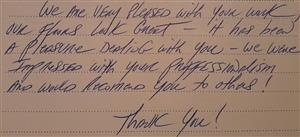 We are very pleased with your work,
our floors look great - it has been
a pleasure dealing with you - we were
impressed with your professionalism
and would recommend you to others!
Thank you!